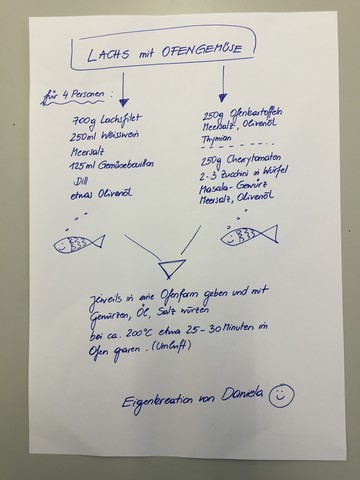 LACHS mit OFENGEMÜSE
für 4 Personen :
700g Lachsfilet
250ml Weisswein
Meersalz
125ml Gemüsebouillon
Dill
etwas Olivenöl
250g Ofenkartoffeln
Meersalz, Olivenöl
Thymian
250g Cherrytomaten
2-3 Zucchini in Würfel
Masala-Gewürz
Meersalz, Olivenöl
Jeweils in eine Ofenform geben und mit
Gewürzen, Öl, Salz würzen
bei ca. 200°C etwa 25-30 Minuten im
Ofen garen. (Umluft)
Eigenkreation von Daniela